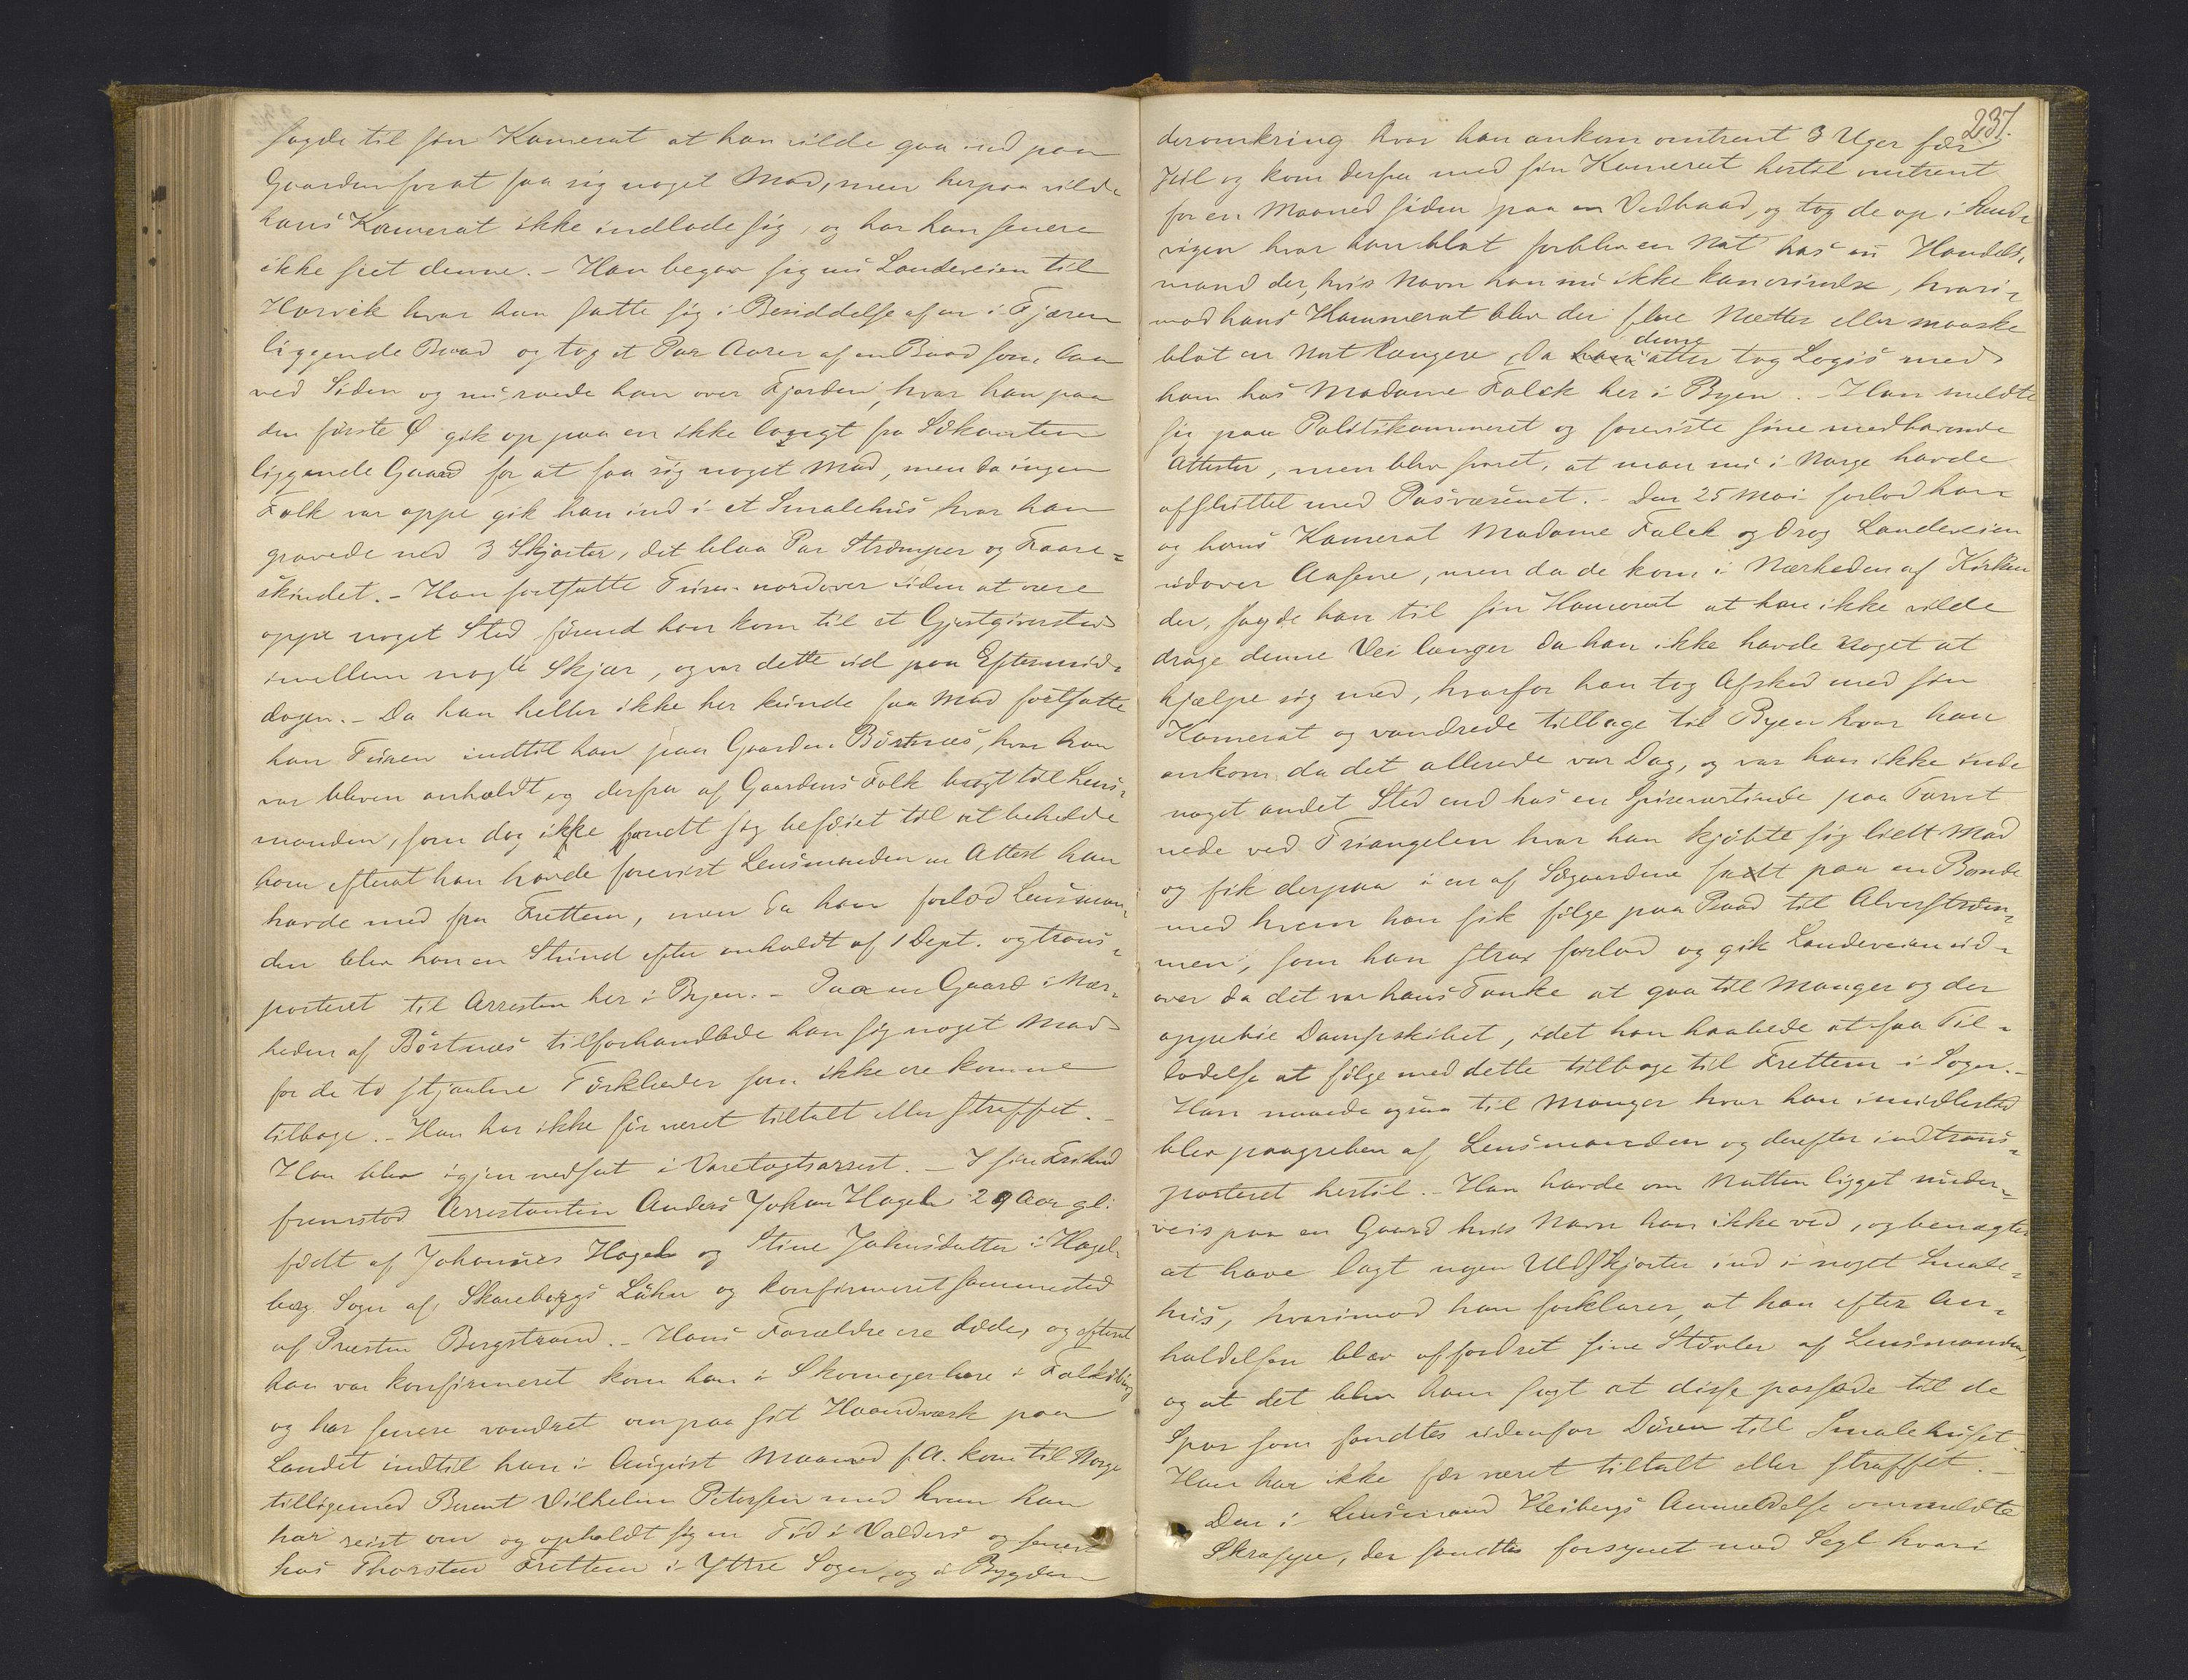 sagde til sin Kamerat at han vilde gaa ind paa
Gaarden forat faa sig noget Mad, men herpaa vilde
hans Kamerat ikke indlade sig, og har han senere
ikke seet denne. - Han begav sig nu Landeveien til
Horvik hvor han satte sig i Besiddelse af en i Fjæren
liggende Baad og tog et Par Aarer af en Baad som laa
ved Siden og nu roede han over Fjorden, hvor han paa
den første Ø gik op paa en ikke langt fra Søkanten
liggende Gaard for at faa sig noget Mad, men da ingen
Folk var oppe gik han ind i et Smalehus hvor han
gravede ned 3 Skjorter, det blaa Par Strømper og Faare-
skindet. - Han fortsatte Turen nordover uden at være
oppe noget Sted førend han kom til et Gjestgiversted
imellem nogle Skjær, og var dette ud paa Eftermid-
dagen. - Da han heller ikke her kunde faa Mad fortsatte
han Turen indtil han paa Gaarden Børtnæs, hvor han
var bleven anholdt, og derfra af Gaardens Folk bragt til Lens-
manden, som dog ikke fandt sig beføiet til at beholde
ham efterat han havde forevist Lensmanden en Attest han
havde med fra Frettem, men da han forlod Lensman-
den blev han en Stund efter anholdt af 1 Dept. og trans-
porteret til Arresten her i Byen. - Paa en Gaard i Nær-
heden af Børtnæs tilforhandlede han sig noget Mad
for de to stjaalne Tørklæder som ikke ere komne
tilbage. - Han har ikke før været tiltalt eller straffet. -
Han blev igjen nedsat i Varetægtsarrest. - I sin Frihed
fremstod Arrestantin Anders Johan Hagel 29 Aar gl.
født af Johannes Hagel og Stine Johnsdatter i Hagel-
berg Sogn af Skareborgs Lähn og konfirmeret sammested
af Præsten Bergstrand. - Hans Forældre ere døde, og efterat
han var konfirmeret kom han i Skomagerlære i Falkøbing
og har senere vandret om paa sit Haandværk paa
Landet indtil han i August Maaned f.A. kom til Norge
tilligemed Bernt Vilhelm Petersen med hvem han
har reist om og opholdt sig en Tid i Valders og senere
hos Thorsten Frettem i Yttre Sogn, og i Bygden
237.
deromkring hvor han ankom omtrent 3 Uger før
Jul og kom derfra med sin Kamerat hertil omtrent
for en Maaned siden paa en Vedbaad, og tog de op i Sand-
vigen hvor han blot forblev en Nat hos en Handels-
mand der, hvis Navn han nu ikke kan erindre, hvori-
mod hans Kammerat blev der flere Nætter eller maaske
blot en Nat længere, da denne atter tog Logis med
ham hos Madame Falck her i Byen. - Han meldte
sig paa Politikammeret og foreviste sine medhavende
Attester, men blev svaret, at man nu i Norge havde
afsluttet med Pasvæsenet. - Den 25 Mai forlod han
og hans Kamerat Madame Falck og drog Landeveien
udover Aasene, men da de kom i Nærheden af Kirken
der, sagde han til sin Kamerat at han ikke vilde
drage denne Vei længer da han ikke havde noget at
hjælpe sig med, hvorfor han tog Afsked med sin
Kamerat og vandrede tilbage til Byen hvor han
ankom da det allerede var Dag, og var han ikke inde
noget andet Sted end hos en Spiseværtinde paa Torvet
nede ved Triangelen hvor han kjøbte sig lidt Mad
og fik derpaa i en af Søgaardene fatt paa en Bonde
med hvem han fik følge paa Baad til Alverstrøm-
men, som han strax forlod og gik Landeveien ud-
over da det var hans Tanke at gaa til Manger og der
oppebie Dampskibet, idet han haabede at faa Til-
ladelse at følge med dette tilbage til Frettem i Sogn. -
Han naaede ogsaa til Manger hvor han imidlertid
blev paagreben af Lensmanden og derefter indtrans-
porteret hertil. - Han havde om Natten ligget under-
veis paa en Gaard hvis Navn han ikke ved, og benægter
at have lagt nogen Uldskjorter ind i noget Smale-
hus, hvorimod han forklarer, at han efter An-
holdelsen blev affordret sine Støvler af Lensmanden,
og at det blev ham sagt at disse passede til de
Spor som fandtes udenfor Døren til Smalehuset.
Han har ikke før været tiltalt eller straffet. -
Den i Lensmand Heibergs Anmeldelse ommeldte
Skræppe, der fandtes forsynet med Segl hvori